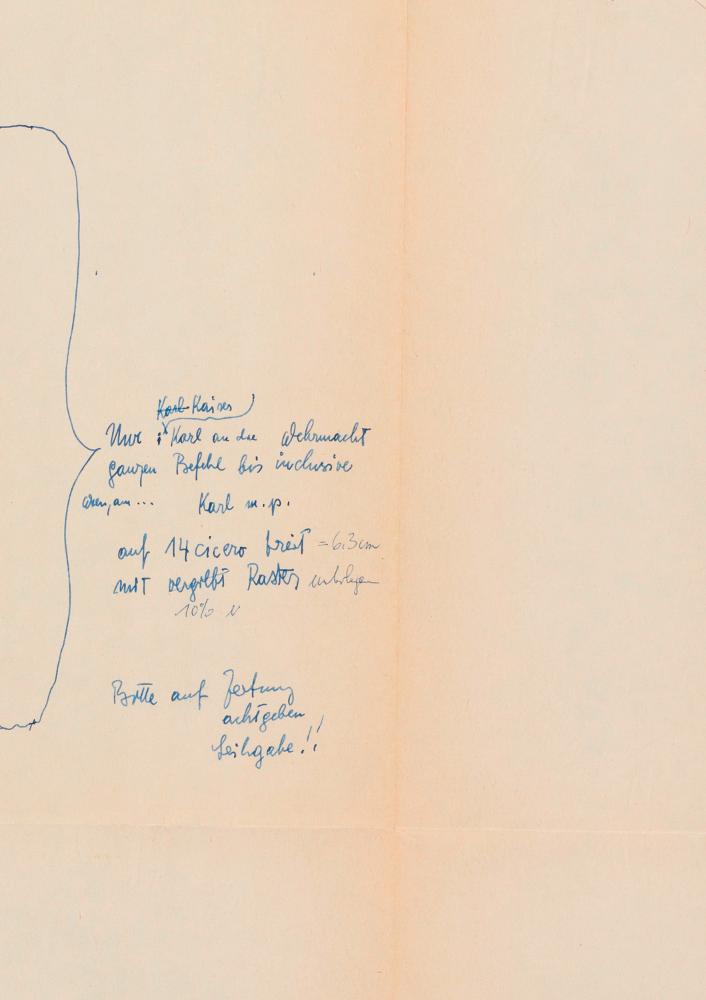 Karl Kaiser
Nur Karl an die Wehrmacht
ganzen Befehl bis inclusive
Wien, am ... Karl m. p.
auf 14 cicero breit = 6.3 cm
mit vergilbt Raster unterlegen
10% v
Bitte auf Zeitung
achtgeben
Leihgabe!!